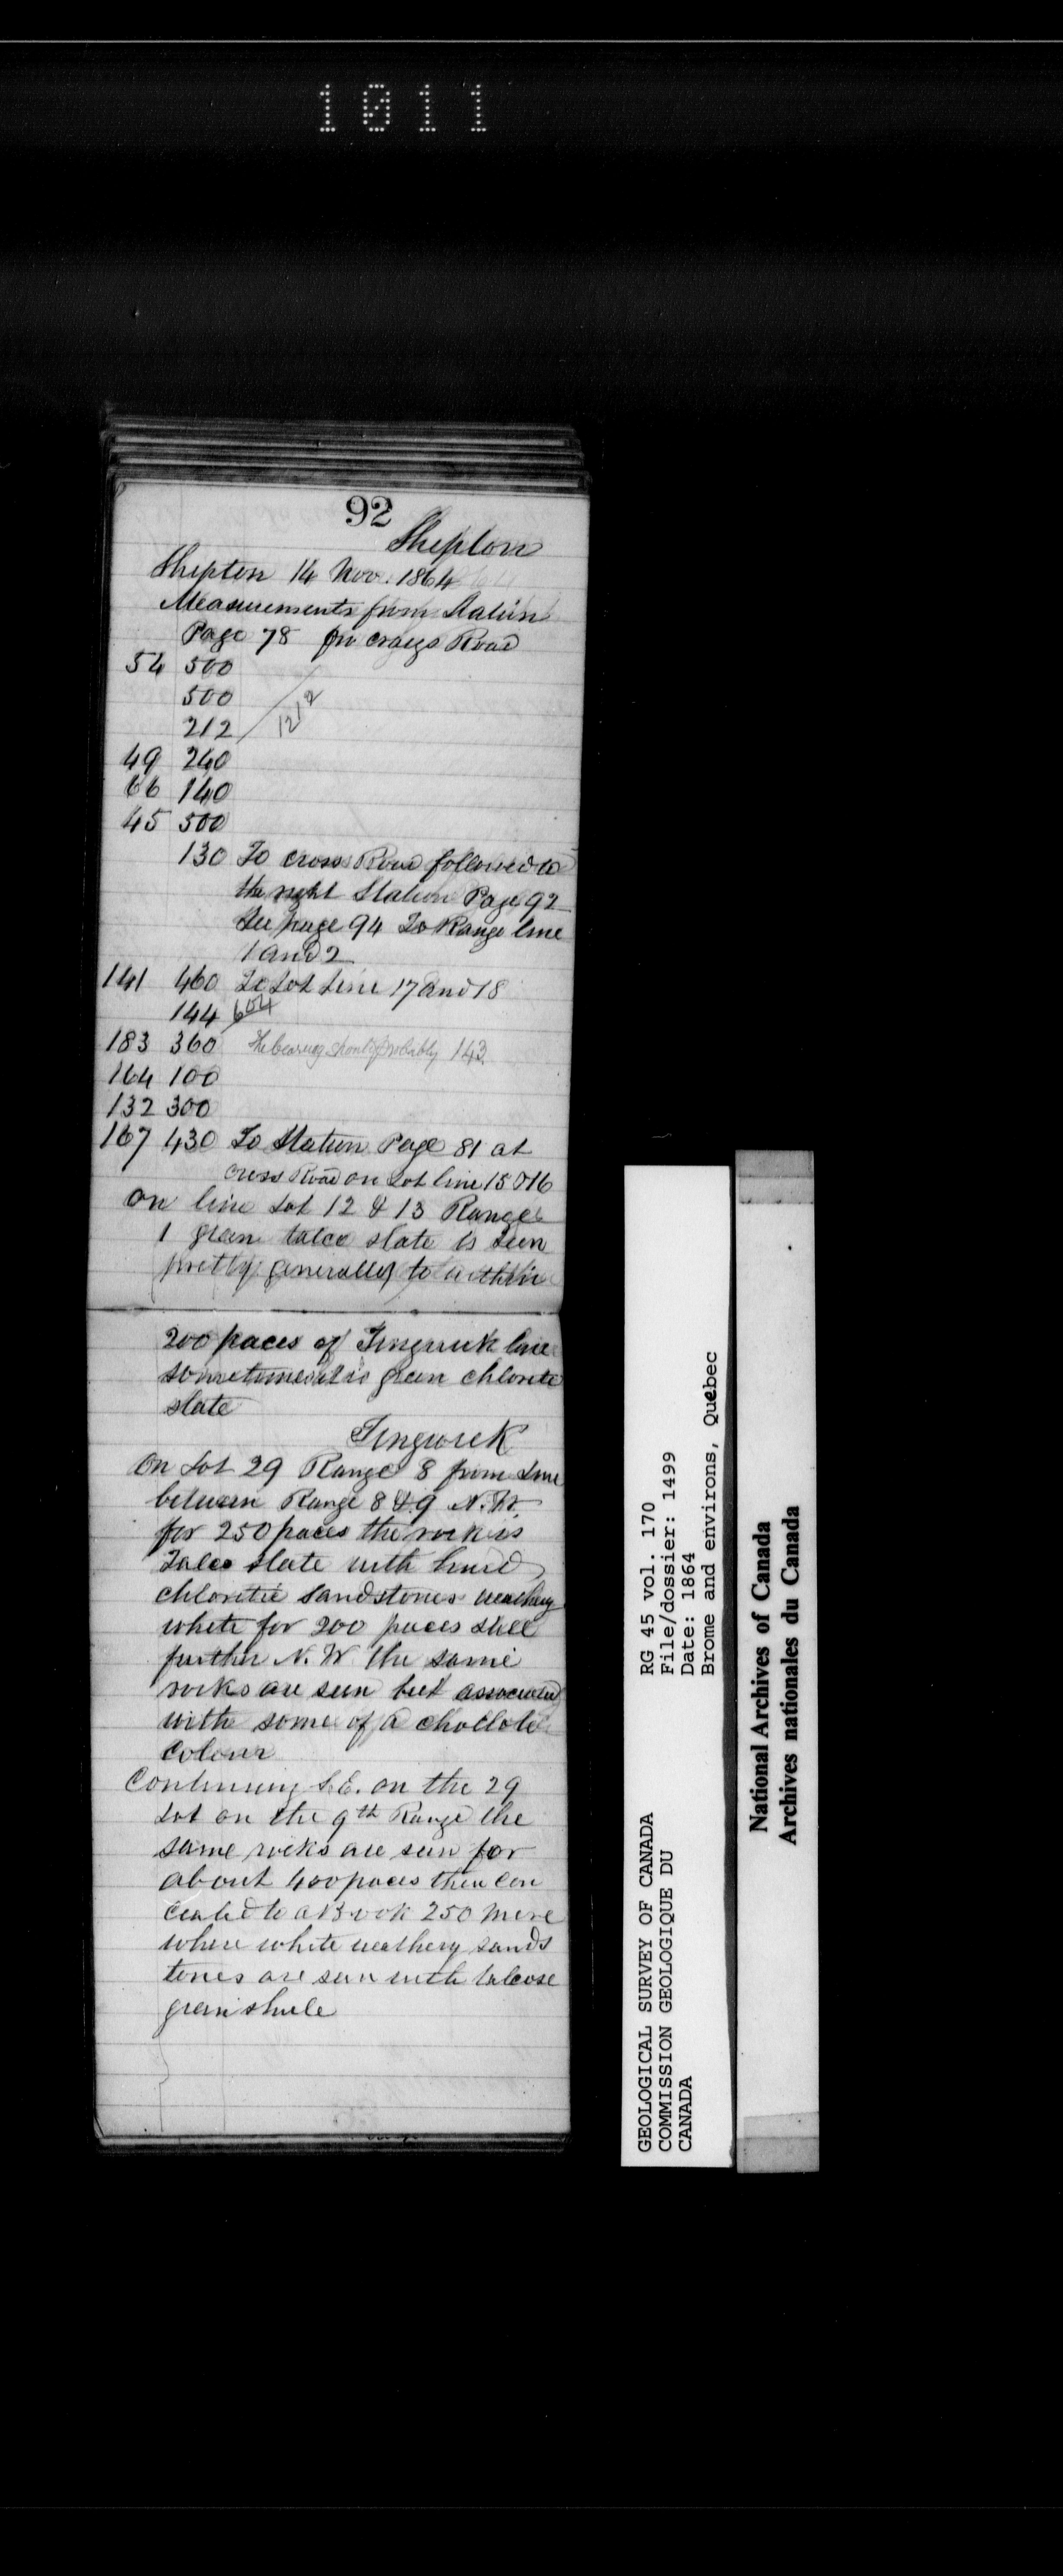 1011
92
Shipton
Shipton 14 Nov. 1864
Measurements from Station
Page 78 on Craigs Road
54 500
500
212 1212
49 240
66 140
45 500
130 To cross Road followed to
the right Station Page 92
See page 94 To Range line
1 and 2
141 460 To Lot line 17 and 18
144 604
183 360 The bearing probably 143
164 100
132 300
167 430 To Station Page 81 at
cross Road on Lot line 15 & 16
on line Lot 12 & 13 Range
1 green talco slate is seen
pretty generally to within
200 paces of Tingwick line
sometimes it is green chlorite
slate
Tingwick
On Lot 29 Range 8 from Line
between Range 8 & 9 N.W.
for 250 paces the rock is
Talco slate with
chloritic sandstones weathery
white for 200 paces still
further N.W. the same
rocks are seen but associated
with some of a chocolate
colour
Continuing S.E. on the 29
Lot on the 9th Range the
same rocks are seen for
about 400 paces then con
cealed to a Brook 250 more
where white weathery sands
tones are seen with talcose
green shale
GEOLOGICAL SURVEY OF CANADA
COMMISSION GEOLOGIQUE DU
CANADA
RG 45 vol. 170
File/dossier: 1499
Date: 1864
Brome and environs, Quebec
National Archives of Canada
Archives nationales du Canada